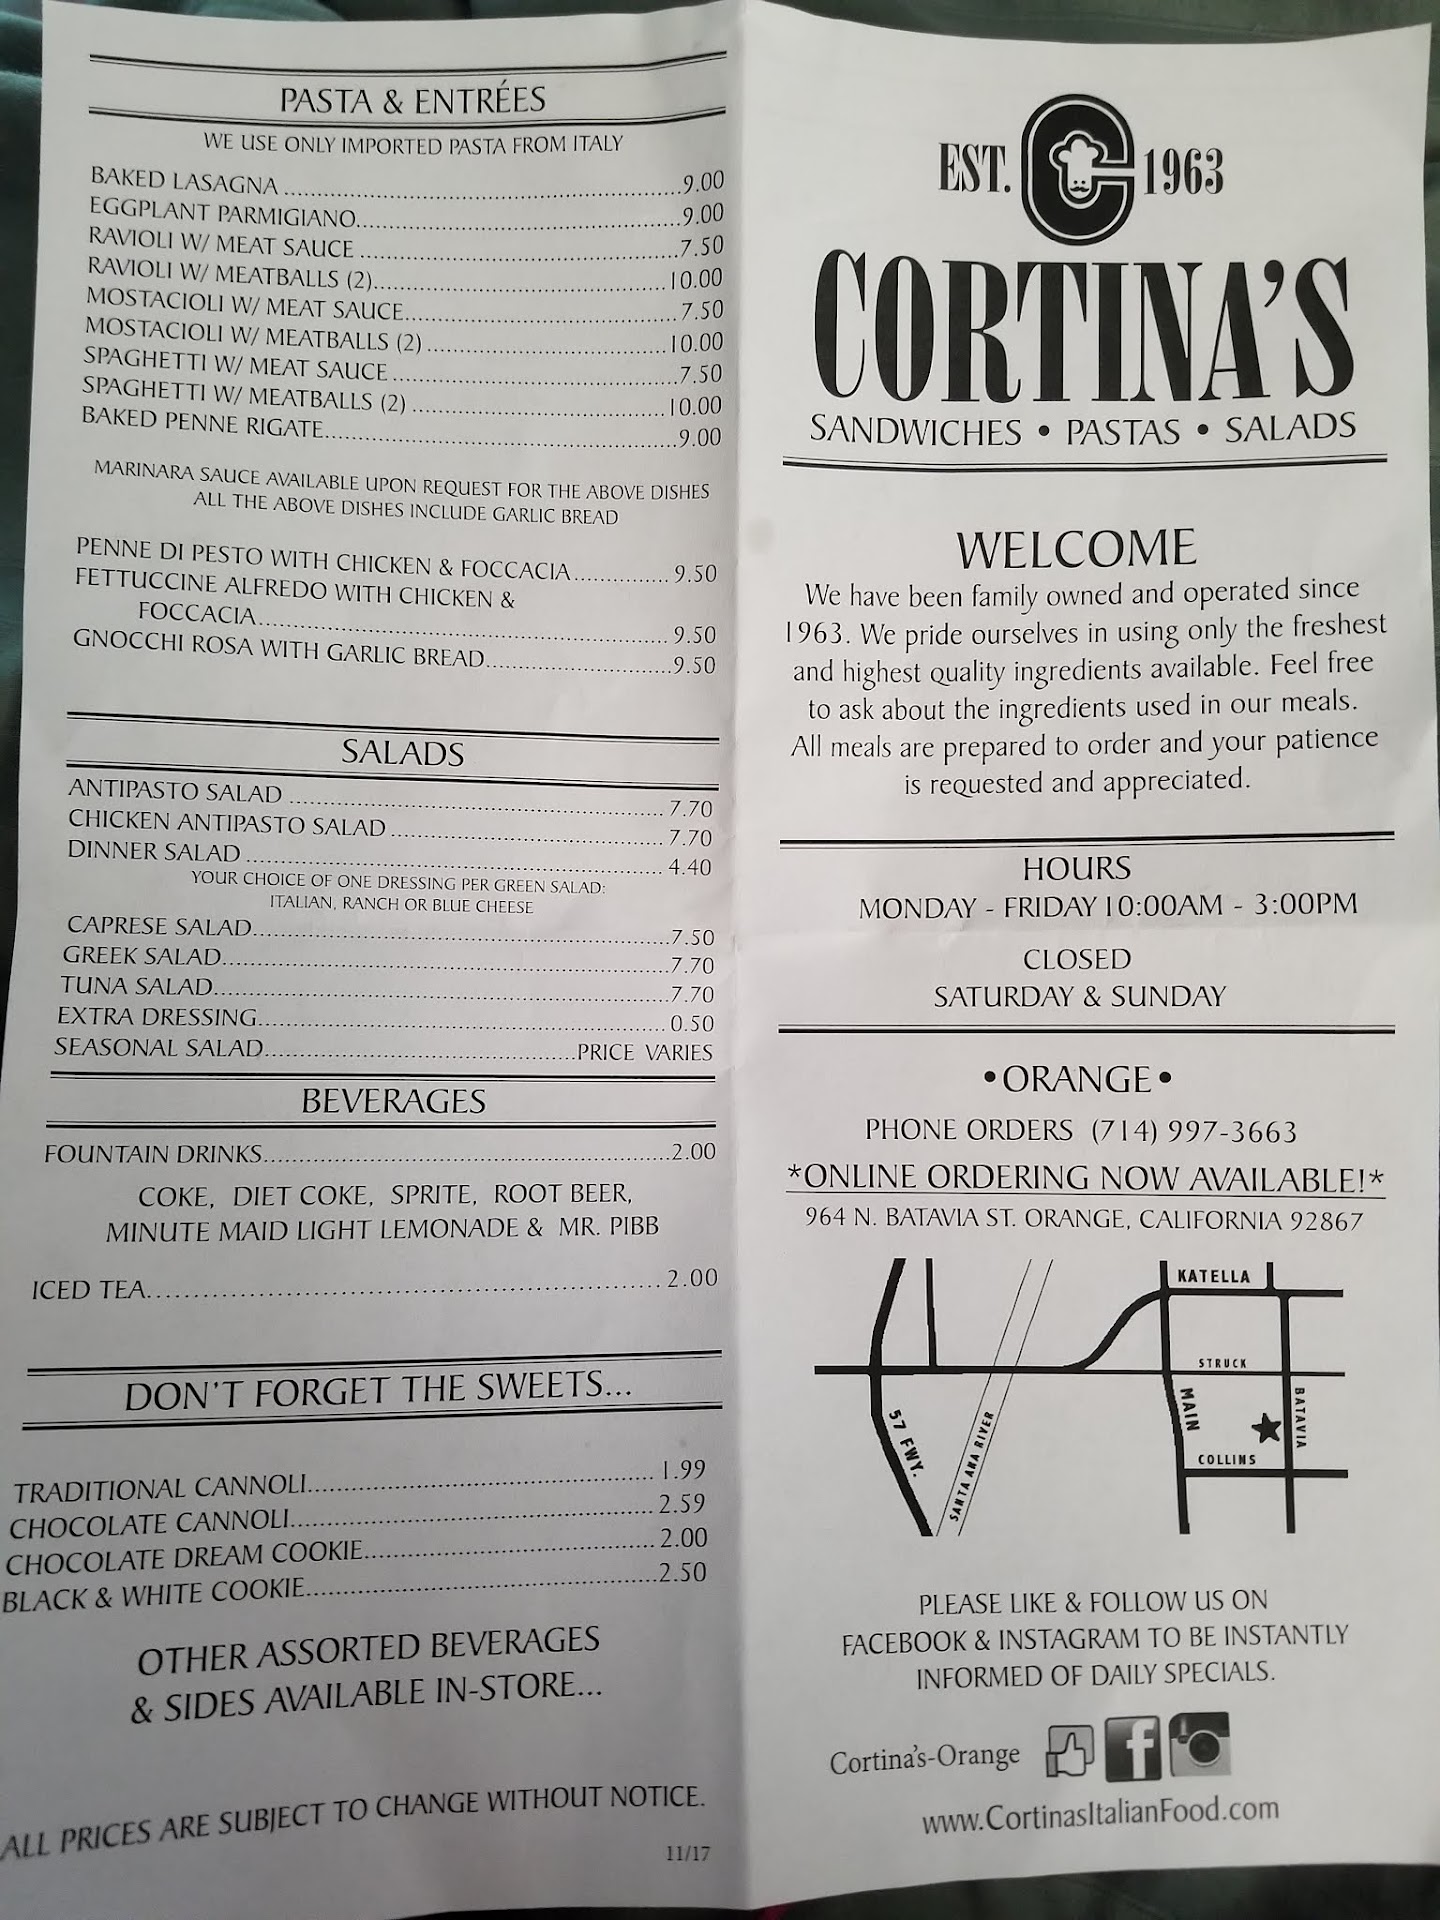 PASTA & ENTRÉES
WE USE ONLY IMPORTED PASTA FROM ITALY
BAKED LASAGNA 9.00
EGGPLANT PARMIGIANO 9.00
RAVIOLI W/ MEAT SAUCE 7.50
RAVIOLI W/ MEATBALLS (2) 10.00
MOSTACIOLI W/ MEAT SAUCE 7.50
MOSTACIOLI W/ MEATBALLS (2) 10.00
SPAGHETTI W/ MEAT SAUCE 7.50
SPAGHETTI W/ MEATBALLS (2) 10.00
BAKED PENNE RIGATE 9.00
MARINARA SAUCE AVAILABLE UPON REQUEST FOR THE ABOVE DISHES
ALL THE ABOVE DISHES INCLUDE GARLIC BREAD
PENNE DI PESTO WITH CHICKEN & FOCCACIA 9.50
FETTUCCINE ALFREDO WITH CHICKEN &
FOCCACIA 9.50
GNOCCHI ROSA WITH GARLIC BREAD 9.50
SALADS
ANTIPASTO SALAD 7.70
CHICKEN ANTIPASTO SALAD 7.70
DINNER SALAD 4.40
YOUR CHOICE OF ONE DRESSING PER GREEN SALAD:
ITALIAN, RANCH OR BLUE CHEESE
CAPRESE SALAD 7.50
GREEK SALAD 7.70
TUNA SALAD 7.70
EXTRA DRESSING 0.50
SEASONAL SALAD PRICE VARIES
BEVERAGES
FOUNTAIN DRINKS 2.00
COKE, DIET COKE, SPRITE, ROOT BEER,
MINUTE MAID LIGHT LEMONADE & MR. PIBB
ICED TEA 2.00
DON'T FORGET THE SWEETS...
TRADITIONAL CANNOLI 1.99
CHOCOLATE CANNOLI 2.59
CHOCOLATE DREAM COOKIE 2.00
BLACK & WHITE COOKIE 2.50
OTHER ASSORTED BEVERAGES
& SIDES AVAILABLE IN-STORE...
ALL PRICES ARE SUBJECT TO CHANGE WITHOUT NOTICE.
11/17
EST. C 1963
CORTINA'S
SANDWICHES • PASTAS • SALADS
WELCOME
We have been family owned and operated since
1963. We pride ourselves in using only the freshest
and highest quality ingredients available. Feel free
to ask about the ingredients used in our meals.
All meals are prepared to order and your patience
is requested and appreciated.
HOURS
MONDAY - FRIDAY 10:00AM - 3:00PM
CLOSED
SATURDAY & SUNDAY
•ORANGE•
PHONE ORDERS (714) 997-3663
*ONLINE ORDERING NOW AVAILABLE!*
964 N. BATAVIA ST. ORANGE, CALIFORNIA 92867
KATELLA
STRUCK
MAIN
BATAVIA
57 FWY.
SANTA ANA RIVER
COLLINS
PLEASE LIKE & FOLLOW US ON
FACEBOOK & INSTAGRAM TO BE INSTANTLY
INFORMED OF DAILY SPECIALS.
Cortina's-Orange f
www.CortinasItalianFood.com